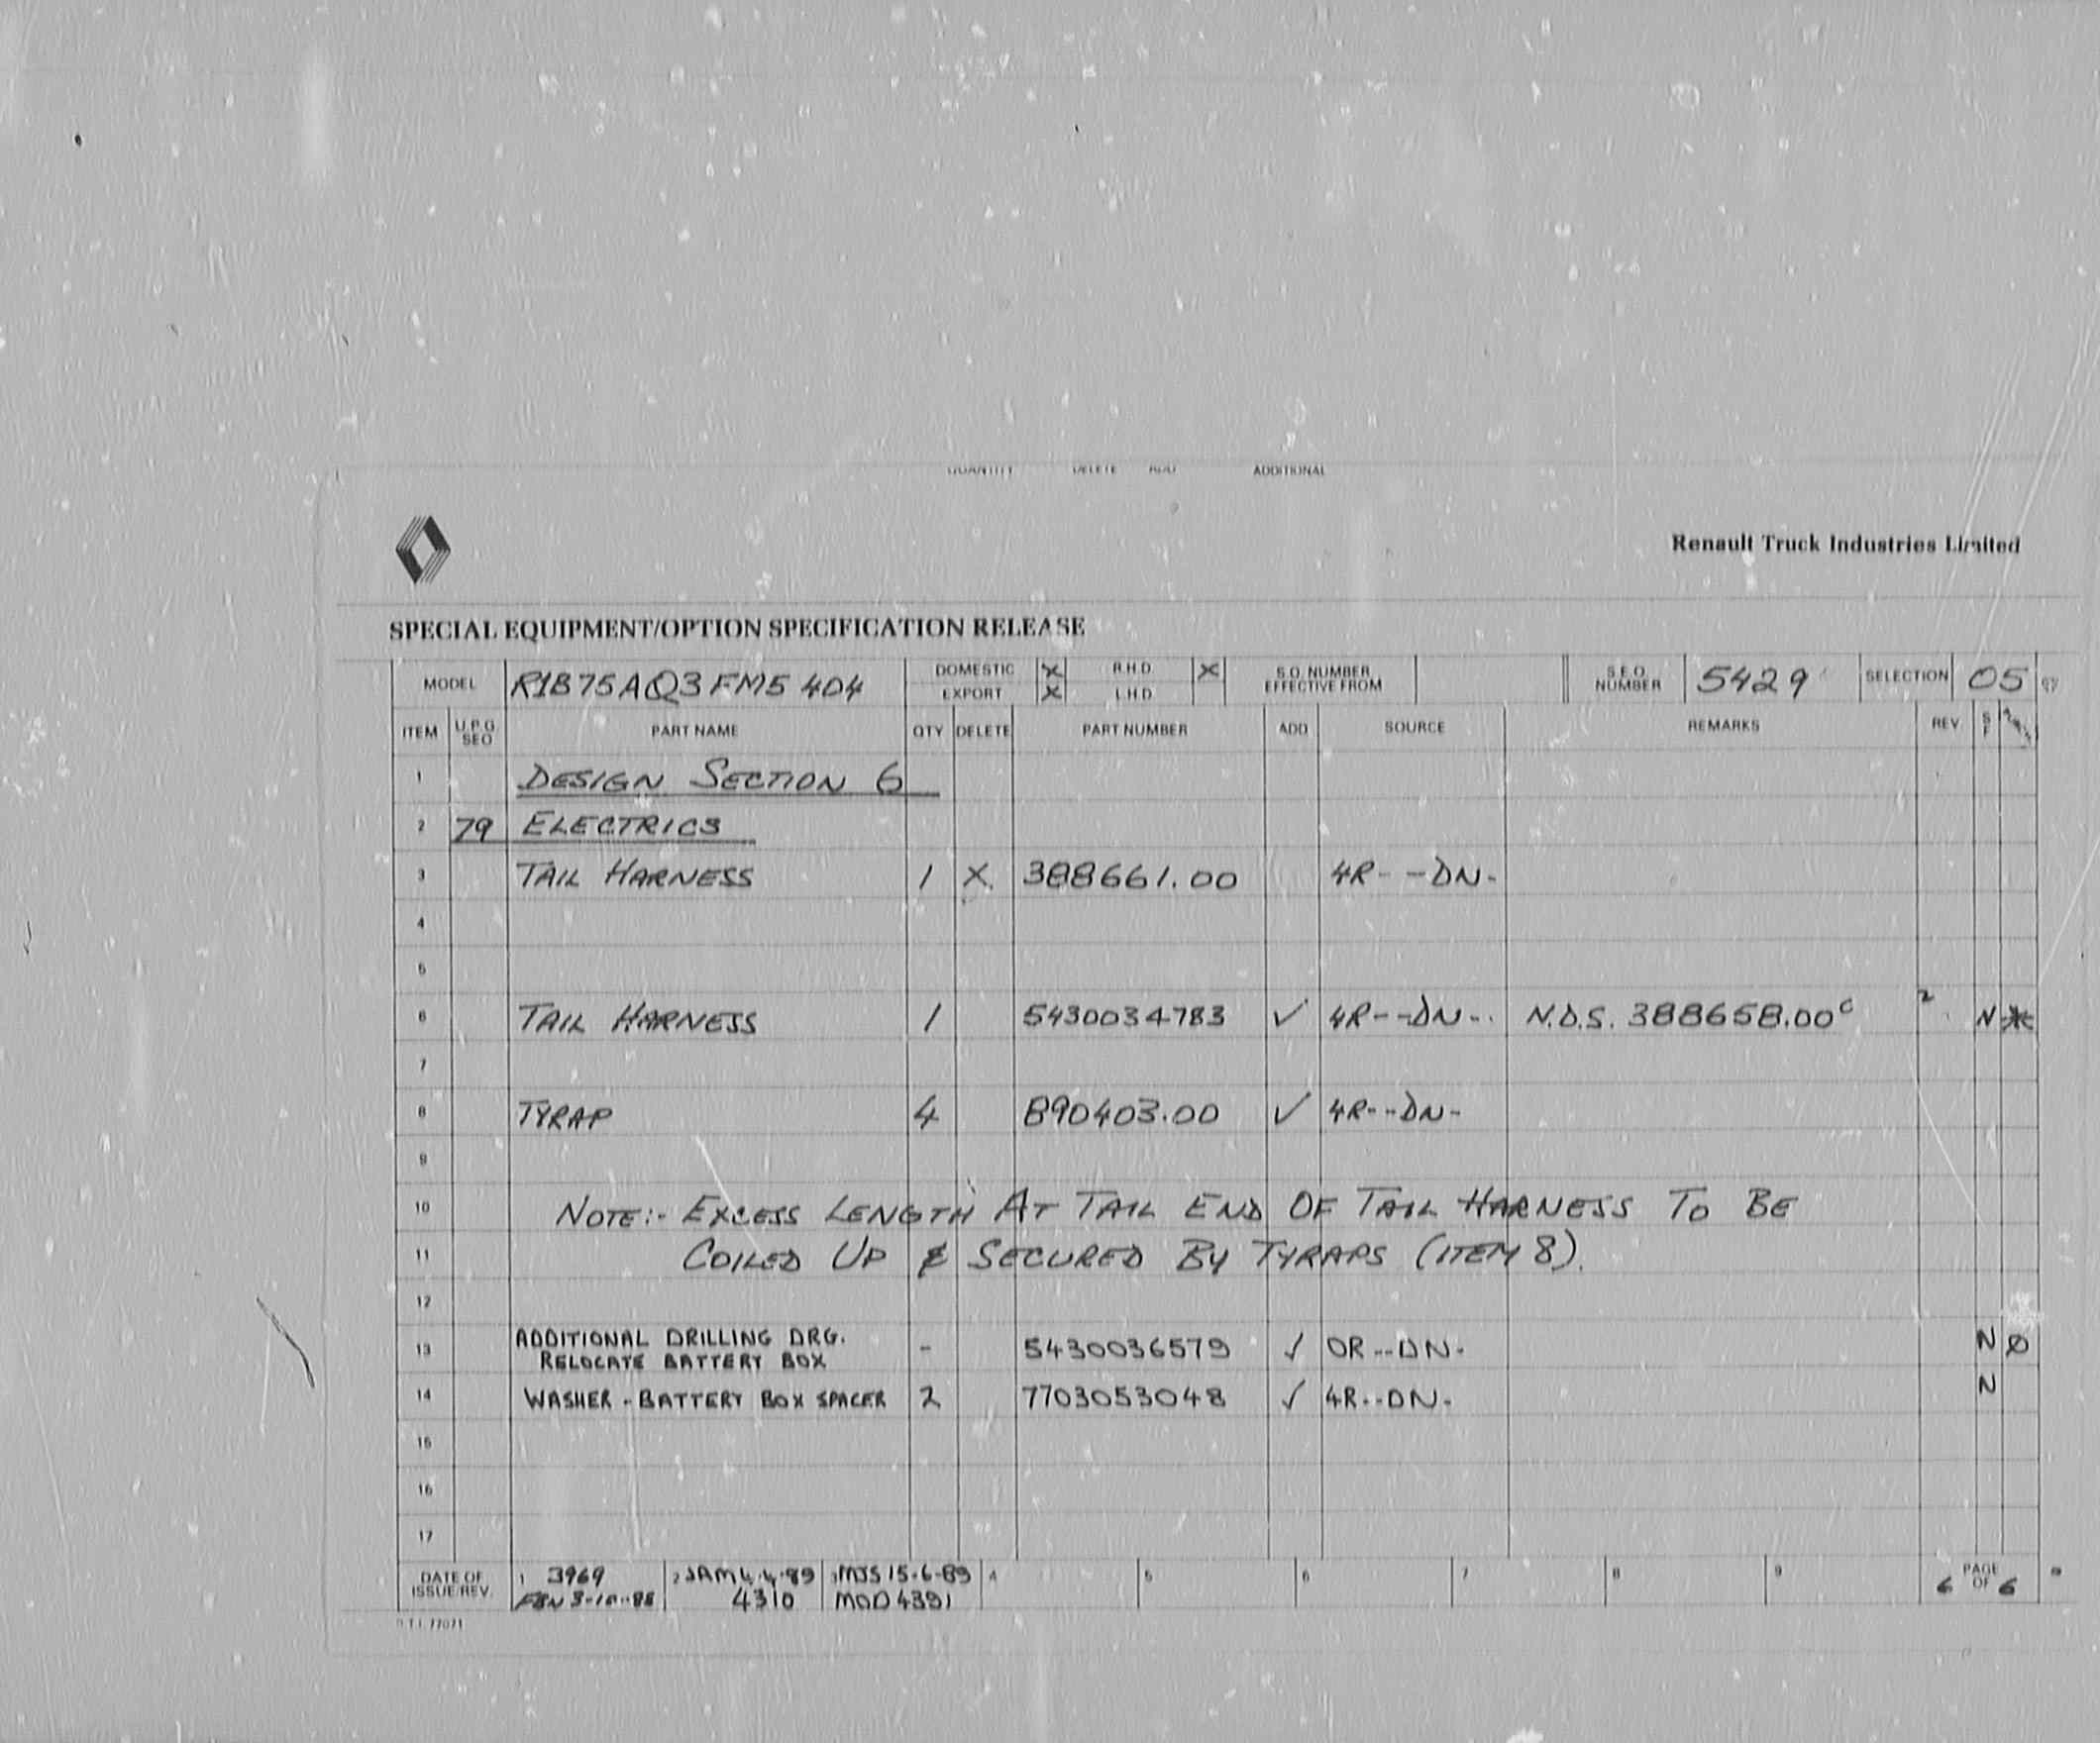 QUANTITY DELETE ADD ADDITIONAL
Renault Truck Industries Limited
SPECIAL EQUIPMENT/OPTION SPECIFICATION RELEASE
MODEL R1B75AQ3FM5 404 DOMESTIC X R.H.D. X S.O. NUMBER EFFECTIVE FROM S.E.O. NUMBER 5429 SELECTION 05
EXPORT X L.H.D.
ITEM U.P.G. SEQ PART NAME QTY DELETE PART NUMBER ADD SOURCE REMARKS REV. S F
1 DESIGN SECTION 6
2 79 ELECTRICS
3 TAIL HARNESS 1 X 388661.00 4R--DN-
4
5
6 TAIL HARNESS 1 5430034783 ✓ 4R--DN- N.D.S. 388658.00 C 2 N *
7
8 TYRAP 4 890403.00 ✓ 4R--DN-
9
10 NOTE:- EXCESS LENGTH AT TAIL END OF TAIL HARNESS TO BE
11 COILED UP & SECURED BY TYRAPS (ITEM 8).
12
13 ADDITIONAL DRILLING DRG. - 5430036579 ✓ OR--DN- N Ø
RELOCATE BATTERY BOX
14 WASHER - BATTERY BOX SPACER 2 7703053048 ✓ 4R--DN- N
15
16
17
DATE OF ISSUE/REV. 1 3969 2 JAM 4.4.89 3 MJS 15-6-89 4 5 6 7 8 9 PAGE 6 OF 6
3-10-88 4310 MOD 4391
R.T.I. 77071